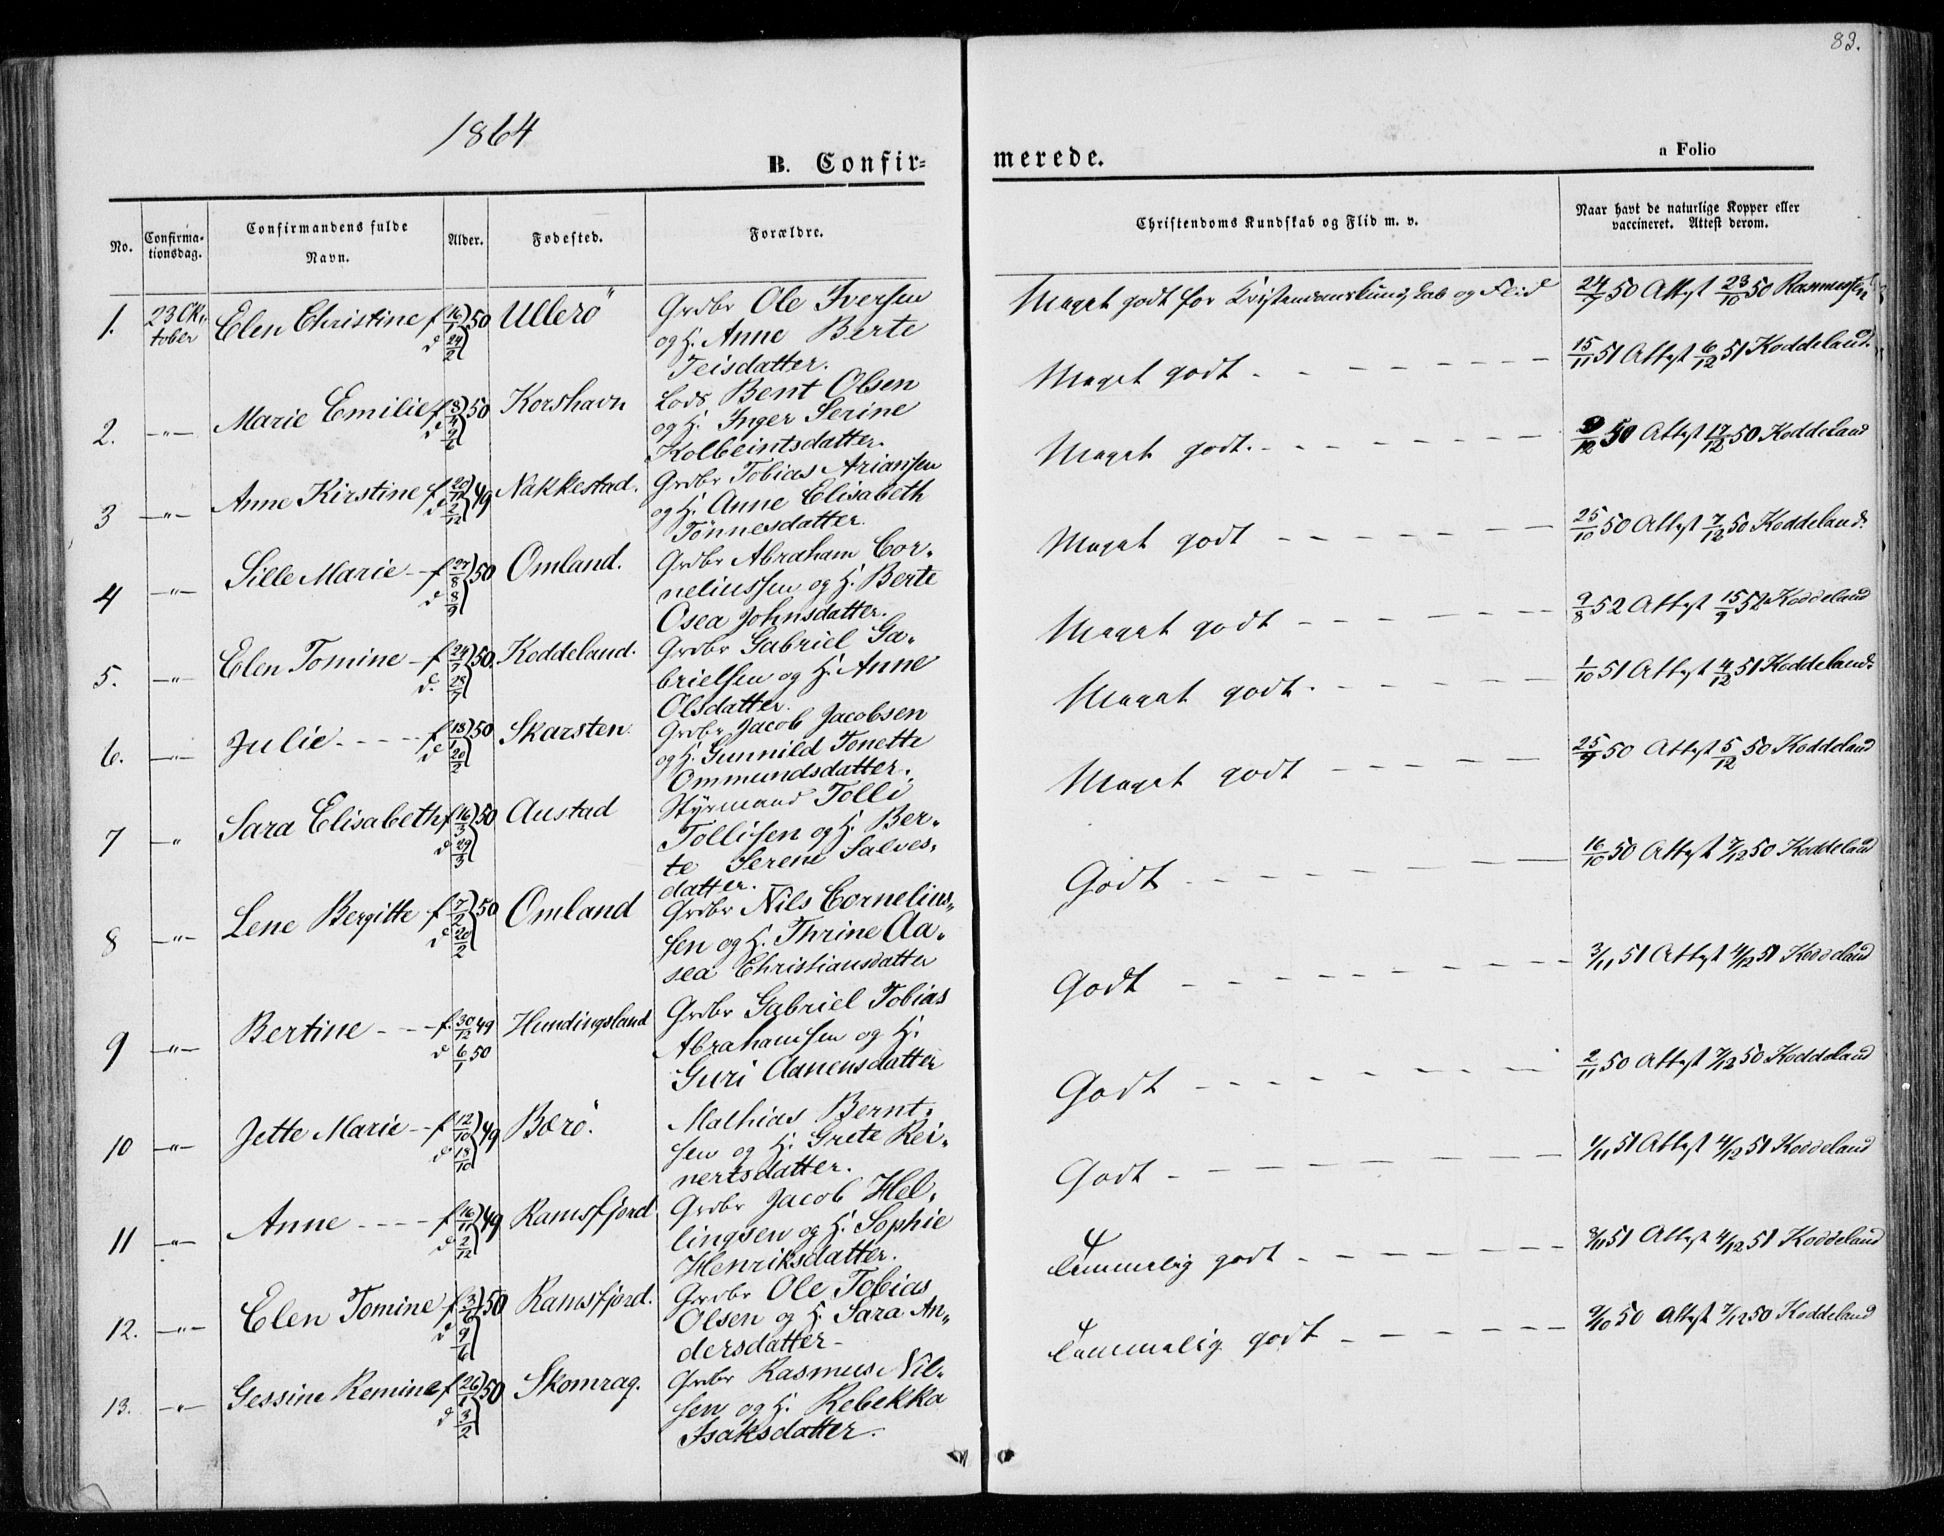 83.
1864
B. Confir=
merede.
a Folio
No.
Confirma-
tionsdag.
Confirmandens fulde
Navn.
Alder.
Fødested.
Forældre.
Christendoms Kundskab og Flid m. v.
Naar havt de naturlige Kopper eller
vaccineret. Attest derom.
1. 23 Ok- Elen Christine f 16/1 50 Ullerö Grdbr Ole Iversen Meget godt for Kristendomskundskab og Flid 24/7 50 Attest 23/10 50 Rasmussen
tober d 24/2 og H. Anne Berte
Teisdatter.
2. -"- Marie Emilie f 8/4 50 Korshavn Lods Bent Olsen Meget godt - - - 15/11 51 Attest 6/12 51 Koddeland.
d 9/6 og H. Inger Serine
Kolbeintsdatter.
3 -"- Anne Kirstine f 20/11 49 Nakkestad. Grdbr Tobias Ariansen Meget godt. - - - 9/12 50 Attest 17/12 50 Koddeland
d 2/12 og H. Anne Elisabeth
Tönnesdatter.
4 -"- Sille Marie - f 27/8 50 Omland. Grdbr Abraham Cor- Meget godt - - - 25/10 50 Attest 7/12 50 Koddeland.
d 8/9 neliussen og H. Berte
Osea Johnsdatter.
5. -"- Elen Tomine - f 24/7 50. Koddeland. Grdbr Gabriel Ga- Meget godt - - - 9/8 52 Attest 15/9 52 Koddeland
d. 28/7 brielsen og H. Anne
Olsdatter.
6. -"- Julie - - - f 18/1 50 Skarsten. Grdbr Jacob Jacobsen Meget godt. - - - 1/10 51 Attest 4/12 51 Koddeland.
d 20/2 og H. Gunnild Tonette
Ommundsdatter.
7 " Sara Elisabeth f 16/3 50 Austad Styrmand Tolli Meget godt - - - 25/9 50 Attest 5/12 50 Koddeland
d 29/3 Tollisen og H. Ber-
te Serene Salves-
datter.
8 -"- Lene Bergitte f 7/2 50 Omland Grdbr Nils Cornelius- Godt - - - 16/10 50 Attest 7/12 50 Koddeland
d 20/2 sen og H. Thrine Aa-
sea Christiansdatter
9 -"- Bertine - - - f. 30/12 49 Hundingsland Grdbr Gabriel Tobias Godt - - - 3/11 51 Attest 4/12 51 Koddeland
d 6/1 50 Abrahamsen og H.
Guri Aanensdatter
10 -"- Jette Marie - f 12/10 49 Bærö. Mathias Bernt- Godt - - - 2/11 50 Attest 7/12 50 Koddeland
d 18/10 sen og H. Grete Rei-
nertsdatter.
11 -"- Anne - - - f 16/11 49 Ramsfjord Grdbr Jacob Hel- Godt - - - 1/11 51 Attest 4/12 51 Koddeland
d 2/12 lingsen og H. Sophie
Henriksdatter.
12. -"- Elen Tomine f 3/6 50 Ramsfjord. Grdbr Ole Tobias Temmelig godt - - - 51 Attest 4/12 51 Koddeland
d 9/6 Olsen og H. Sara An-
dersdatter -
13. -"- Gessine Remine f 26/1 50 Skomrag. Grdbr Rasmus Nil- Temmelig godt - - - 9/10 50 Attest 7/12 50 Koddeland
d 3/2 sen og H. Rebekka
Isaksdatter.